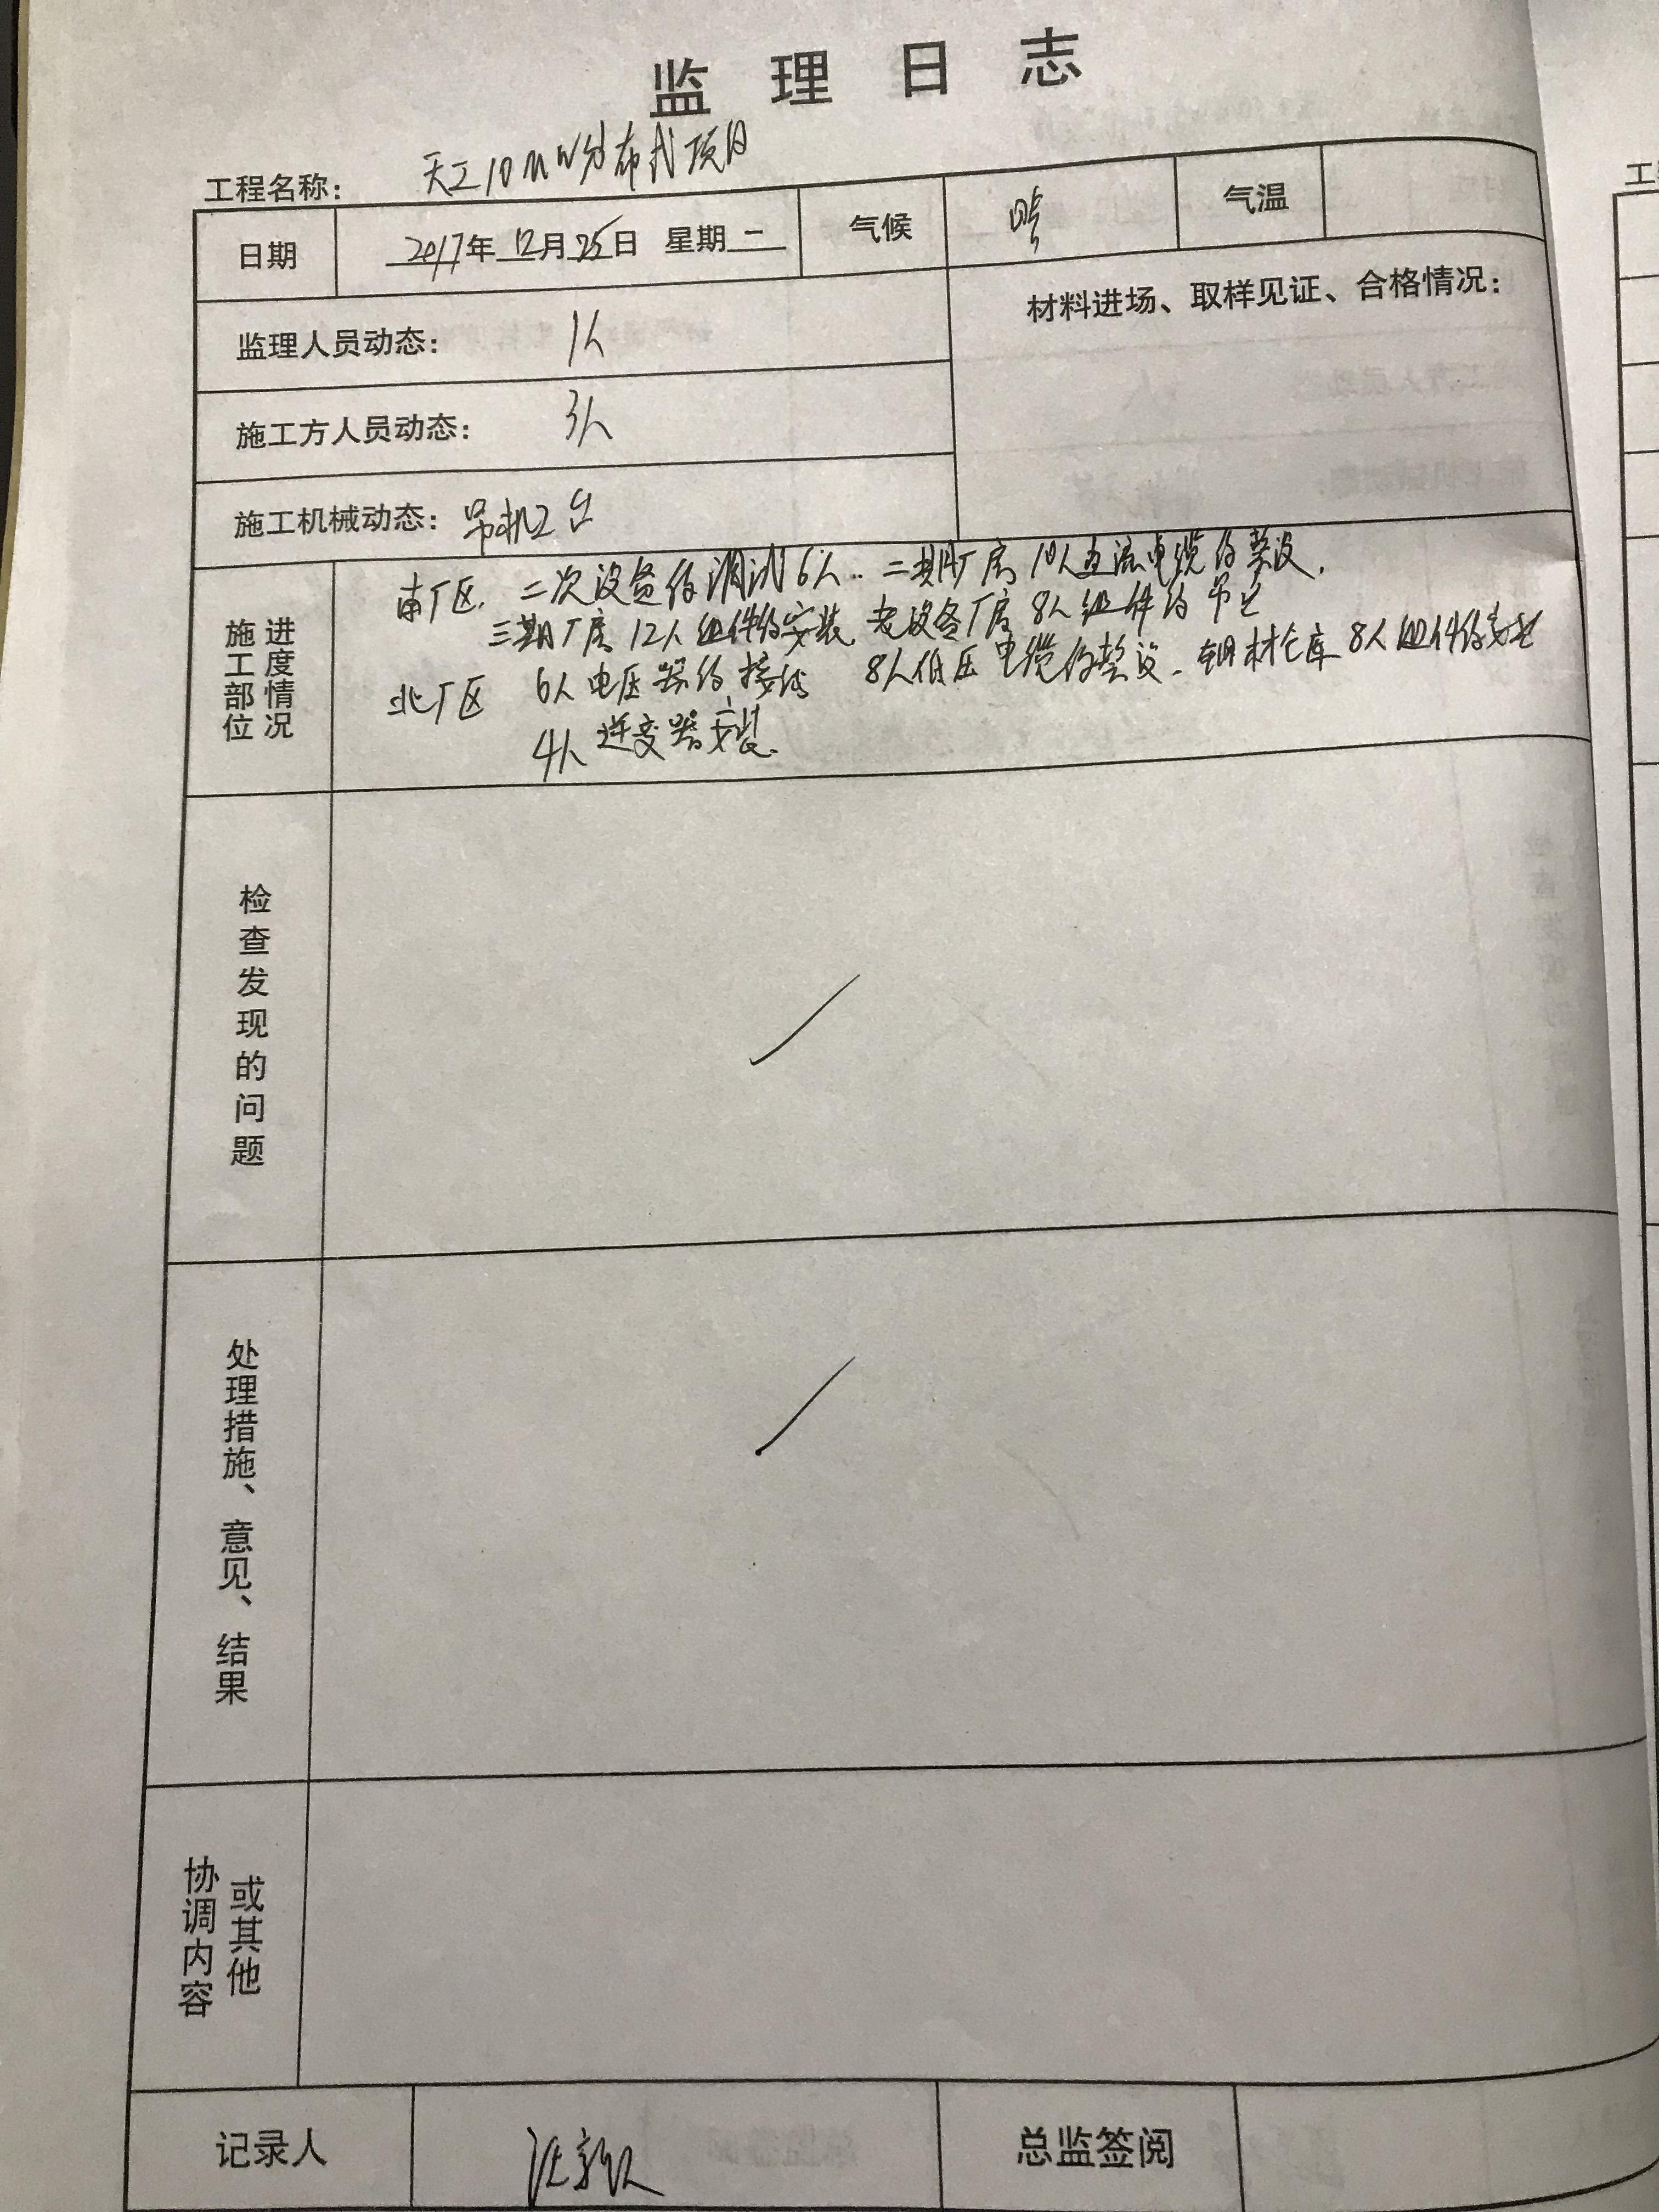 监理日志
工程名称： 天工10MW分布式项目
日期 2017年12月25日 星期二 气候 晴 气温
监理人员动态： 1人
材料进场、取样见证、合格情况：
施工方人员动态： 3人
施工机械动态：吊机2台
施工部位 进度情况
南厂区. 二次设备的调试6人.. 二期厂房10人直流电缆的架设.
三期厂房12人组件的安装. 老设备厂房8人组件的吊运
北厂区 6人电压器的接线 8人低压电缆的敷设. 钢材仓库8人组件的安装
4人逆变器安装.
检查发现的问题
处理措施、意见、结果
协调内容 或其他
记录人 总监签阅